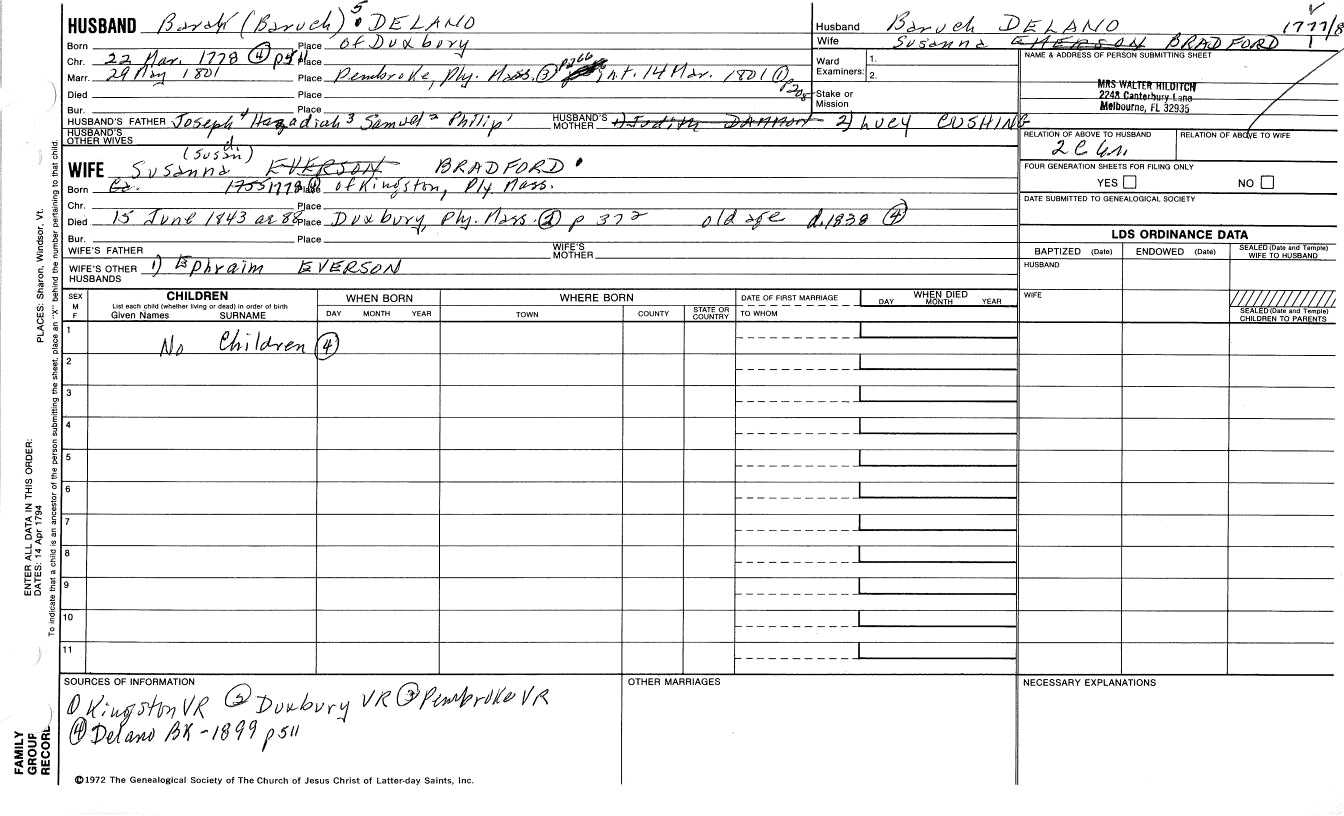 HUSBAND Barak (Baruch) 5 DELANO
Born Place of Duxbury
Chr. 22 Mar. 1778 ④ p511 Place
Marr. 29 May 1801 Place Pembroke, Ply. Mass. ③ p266 int. 14 Mar. 1801 ① p205
Died Place
Bur. Place
HUSBAND'S FATHER Joseph 4 Hazadiah 3 Samuel 2 Philip 1 HUSBAND'S MOTHER 1) Judith DAMMON 2) Lucy CUSHING
HUSBAND'S OTHER WIVES
(Susan)
WIFE Susanna EVERSON BRADFORD
Born Ca. 1755 1778 Place of Kingston, Ply. Mass.
Chr. Place
Died 15 June 1843 ae 88 Place Duxbury, Ply. Mass. ② p 372 old age d. 1838 ④
Bur. Place
WIFE'S FATHER WIFE'S MOTHER
WIFE'S OTHER HUSBANDS 1) Ephraim EVERSON
Husband Baruch DELANO 1777/8
Wife Susanna EMERSON BRADFORD
Ward Examiners: 1. 2.
Stake or Mission
NAME & ADDRESS OF PERSON SUBMITTING SHEET
MRS WALTER HILDITCH
2248 Canterbury Lane
Melbourne, FL 32935
RELATION OF ABOVE TO HUSBAND RELATION OF ABOVE TO WIFE
2C
FOUR GENERATION SHEETS FOR FILING ONLY
YES NO
DATE SUBMITTED TO GENEALOGICAL SOCIETY
LDS ORDINANCE DATA
BAPTIZED (Date) ENDOWED (Date) SEALED (Date and Temple) WIFE TO HUSBAND
HUSBAND
WIFE
SEALED (Date and Temple) CHILDREN TO PARENTS
SEX M F CHILDREN WHEN BORN WHERE BORN DATE OF FIRST MARRIAGE WHEN DIED
List each child (whether living or dead) in order of birth
Given Names SURNAME DAY MONTH YEAR TOWN COUNTY STATE OR COUNTRY TO WHOM DAY MONTH YEAR
1 No Children ④
2
3
4
5
6
7
8
9
10
11
SOURCES OF INFORMATION
① Kingston VR ② Duxbury VR ③ Pembroke VR
④ Delano BK - 1899 p511
OTHER MARRIAGES
NECESSARY EXPLANATIONS
©1972 The Genealogical Society of The Church of Jesus Christ of Latter-day Saints, Inc.
FAMILY GROUP RECORD
ENTER ALL DATA IN THIS ORDER:
DATES: 14 Apr 1794 PLACES: Sharon, Windsor, Vt.
To indicate that a child is an ancestor of the person submitting the sheet, place an "X" behind the number pertaining to that child.